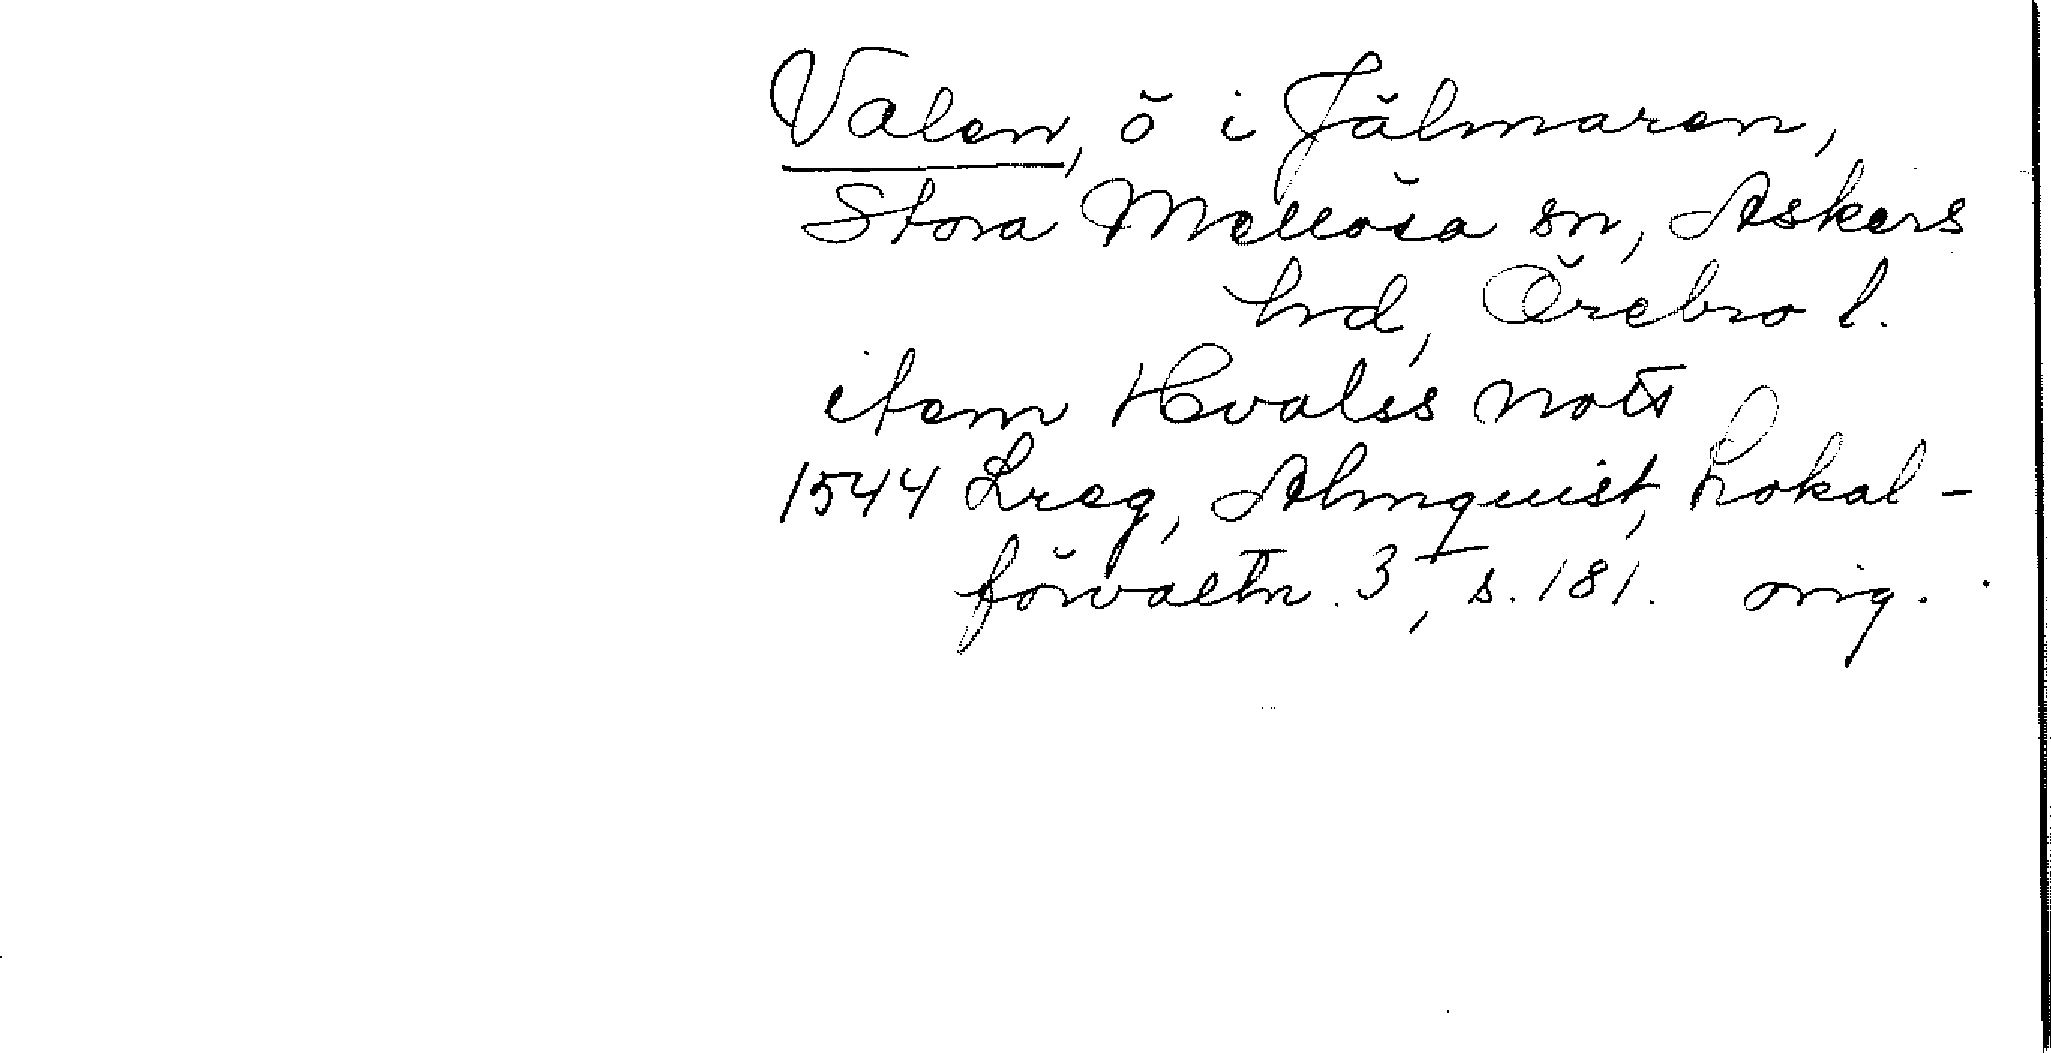 Valen, ö i Jälmaren,
Stora Mellösa sn, Askers
hrd, Örebro l.
item Hvalss nott
1544 Lreg, Almquist, Lokal-
förvaltn. 3, s. 181. orig.